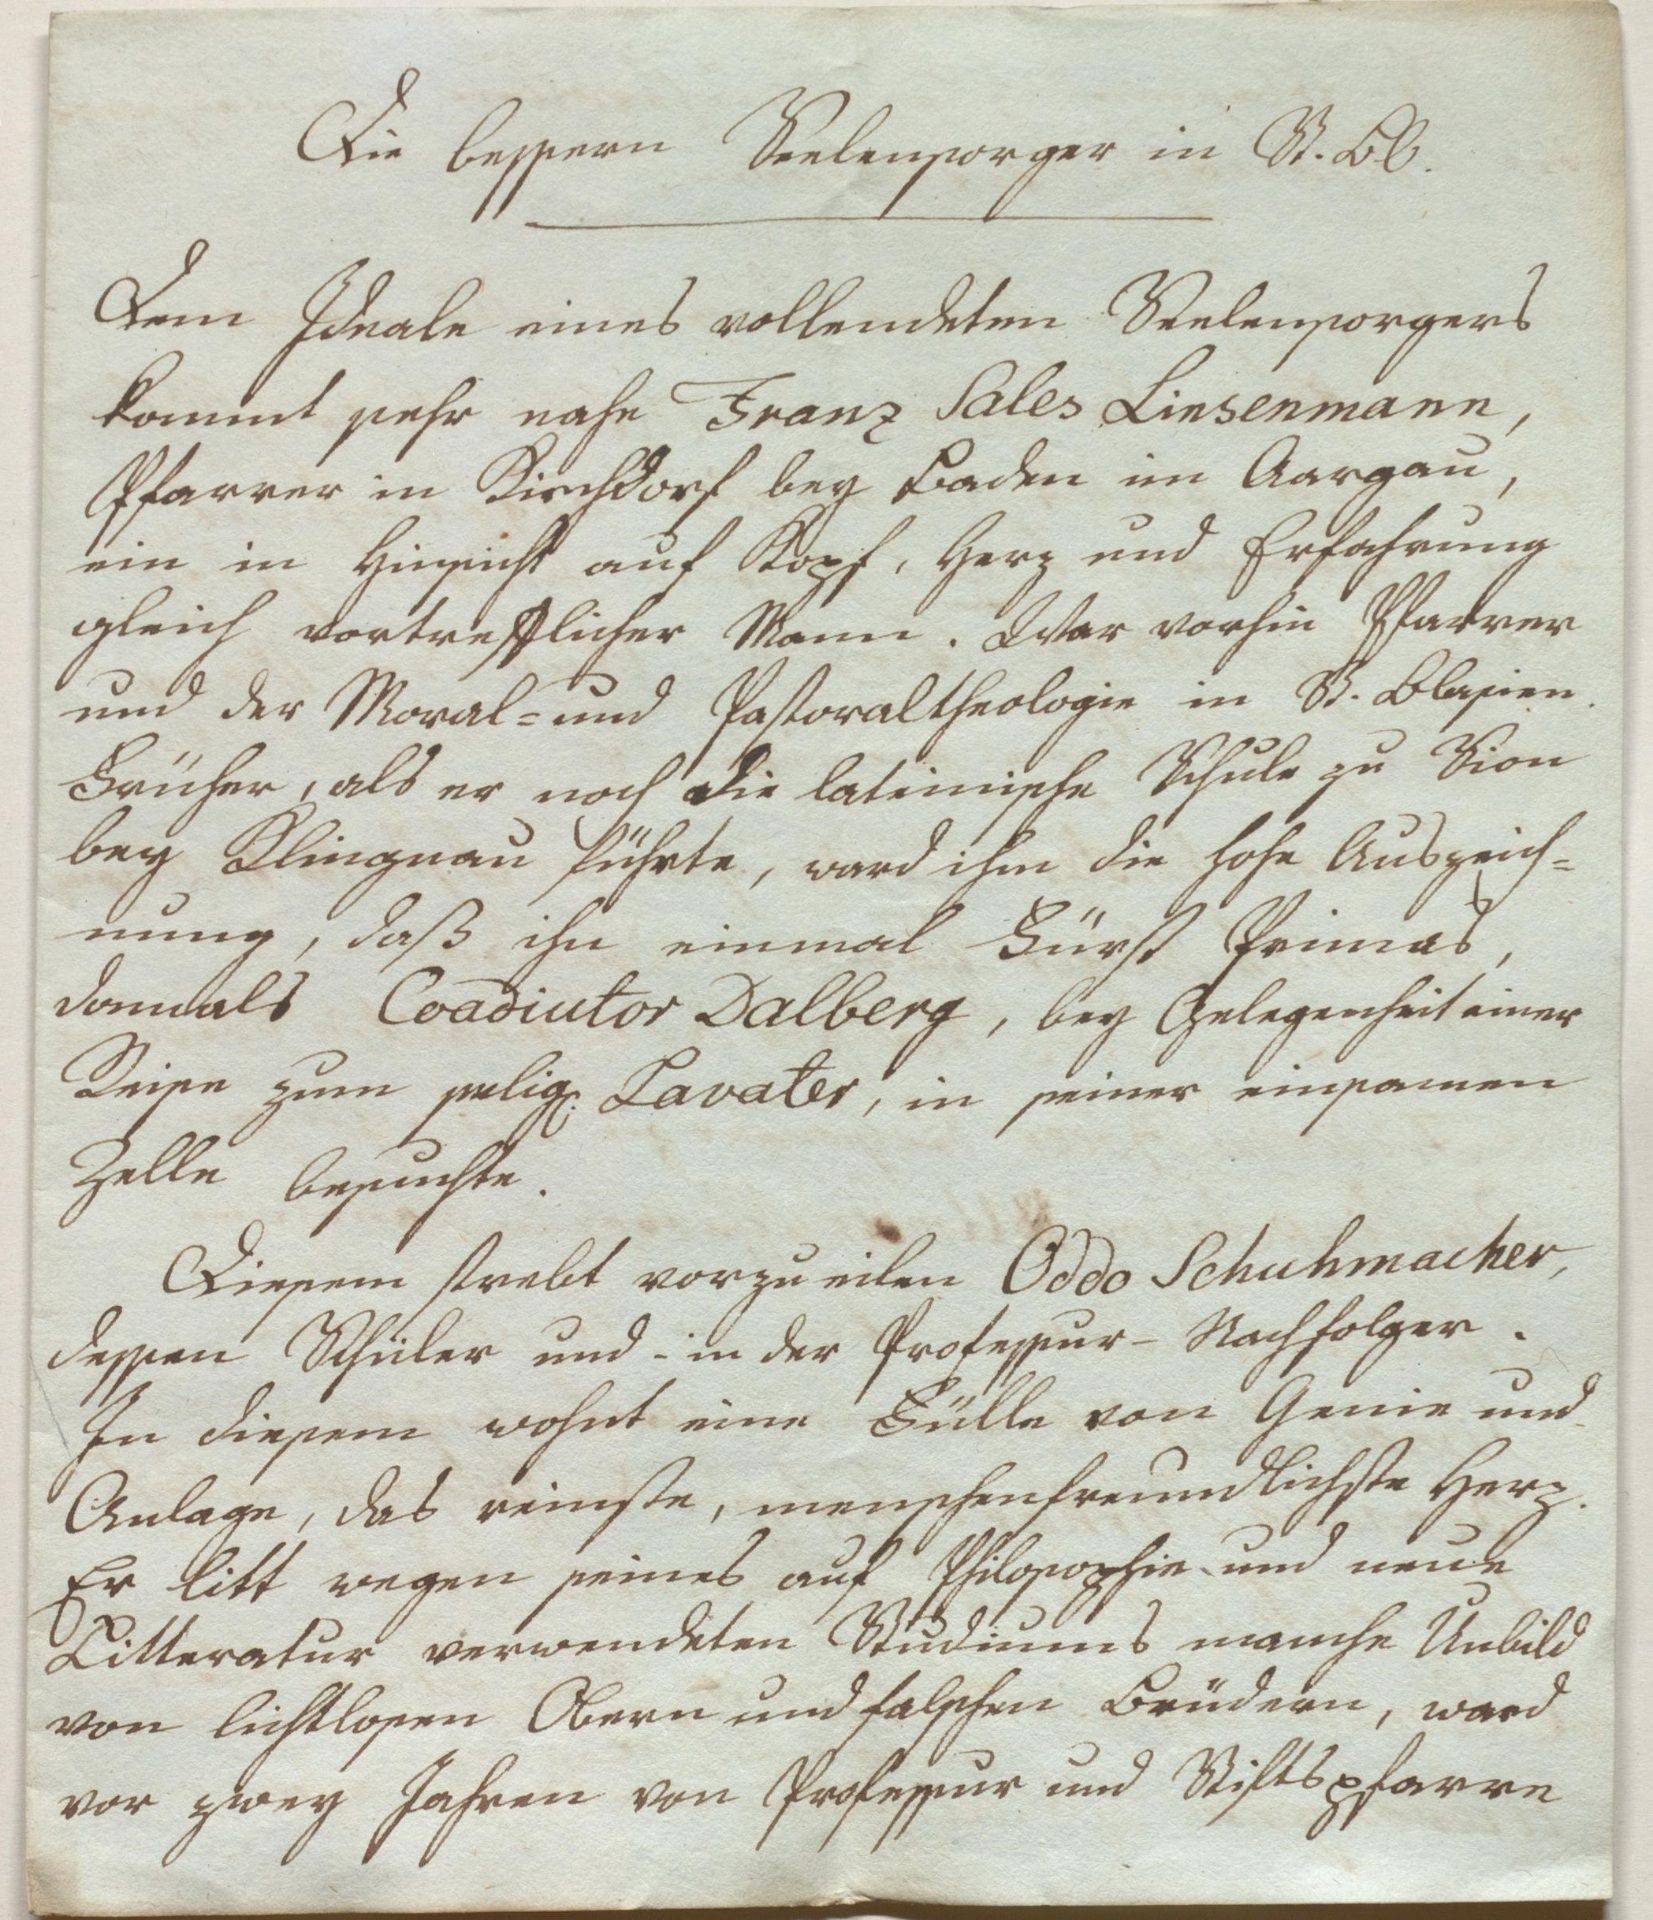 Die bessern Seelensorger in St. Bl.
Dem Ideale eines vollendeten Seelensorgers
kommt sehr nahe Franz Sales Linsenmann,
Pfarrer in Kirchdorf bey Baden im Aargau,
ein in Hinsicht auf Kopf, Herz und Erfahrung
gleich vortrefflicher Mann. War vorhin Pfarrer
und der Moral- und Pastoraltheologie in St. Blasien.
Früher, als er noch die lateinische Schule zu Sion
bey Klingnau führte, ward ihm die hohe Auszeich=
nung, daß ihn einmal Fürst Primas,
damals Coadiutor Dalberg, bey Gelegenheit einer
Reise zum selig. Lavater, in seiner einsamen
Zelle besuchte.
Diesem strebt vorzueilen Oddo Schuhmacher,
dessen Schüler und - in der Professur - Nachfolger.
In diesem wohnt eine Fülle von Genie und
Anlage, das reinste, menschenfreundlichste Herz.
Er litt wegen seines auf Philosophie und neue
Litteratur verwendeten Studiums manche Unbild
von lichtlosen Obern und falschen Brüdern, ward
vor zwey Jahren von Professur und Stiftspfarre